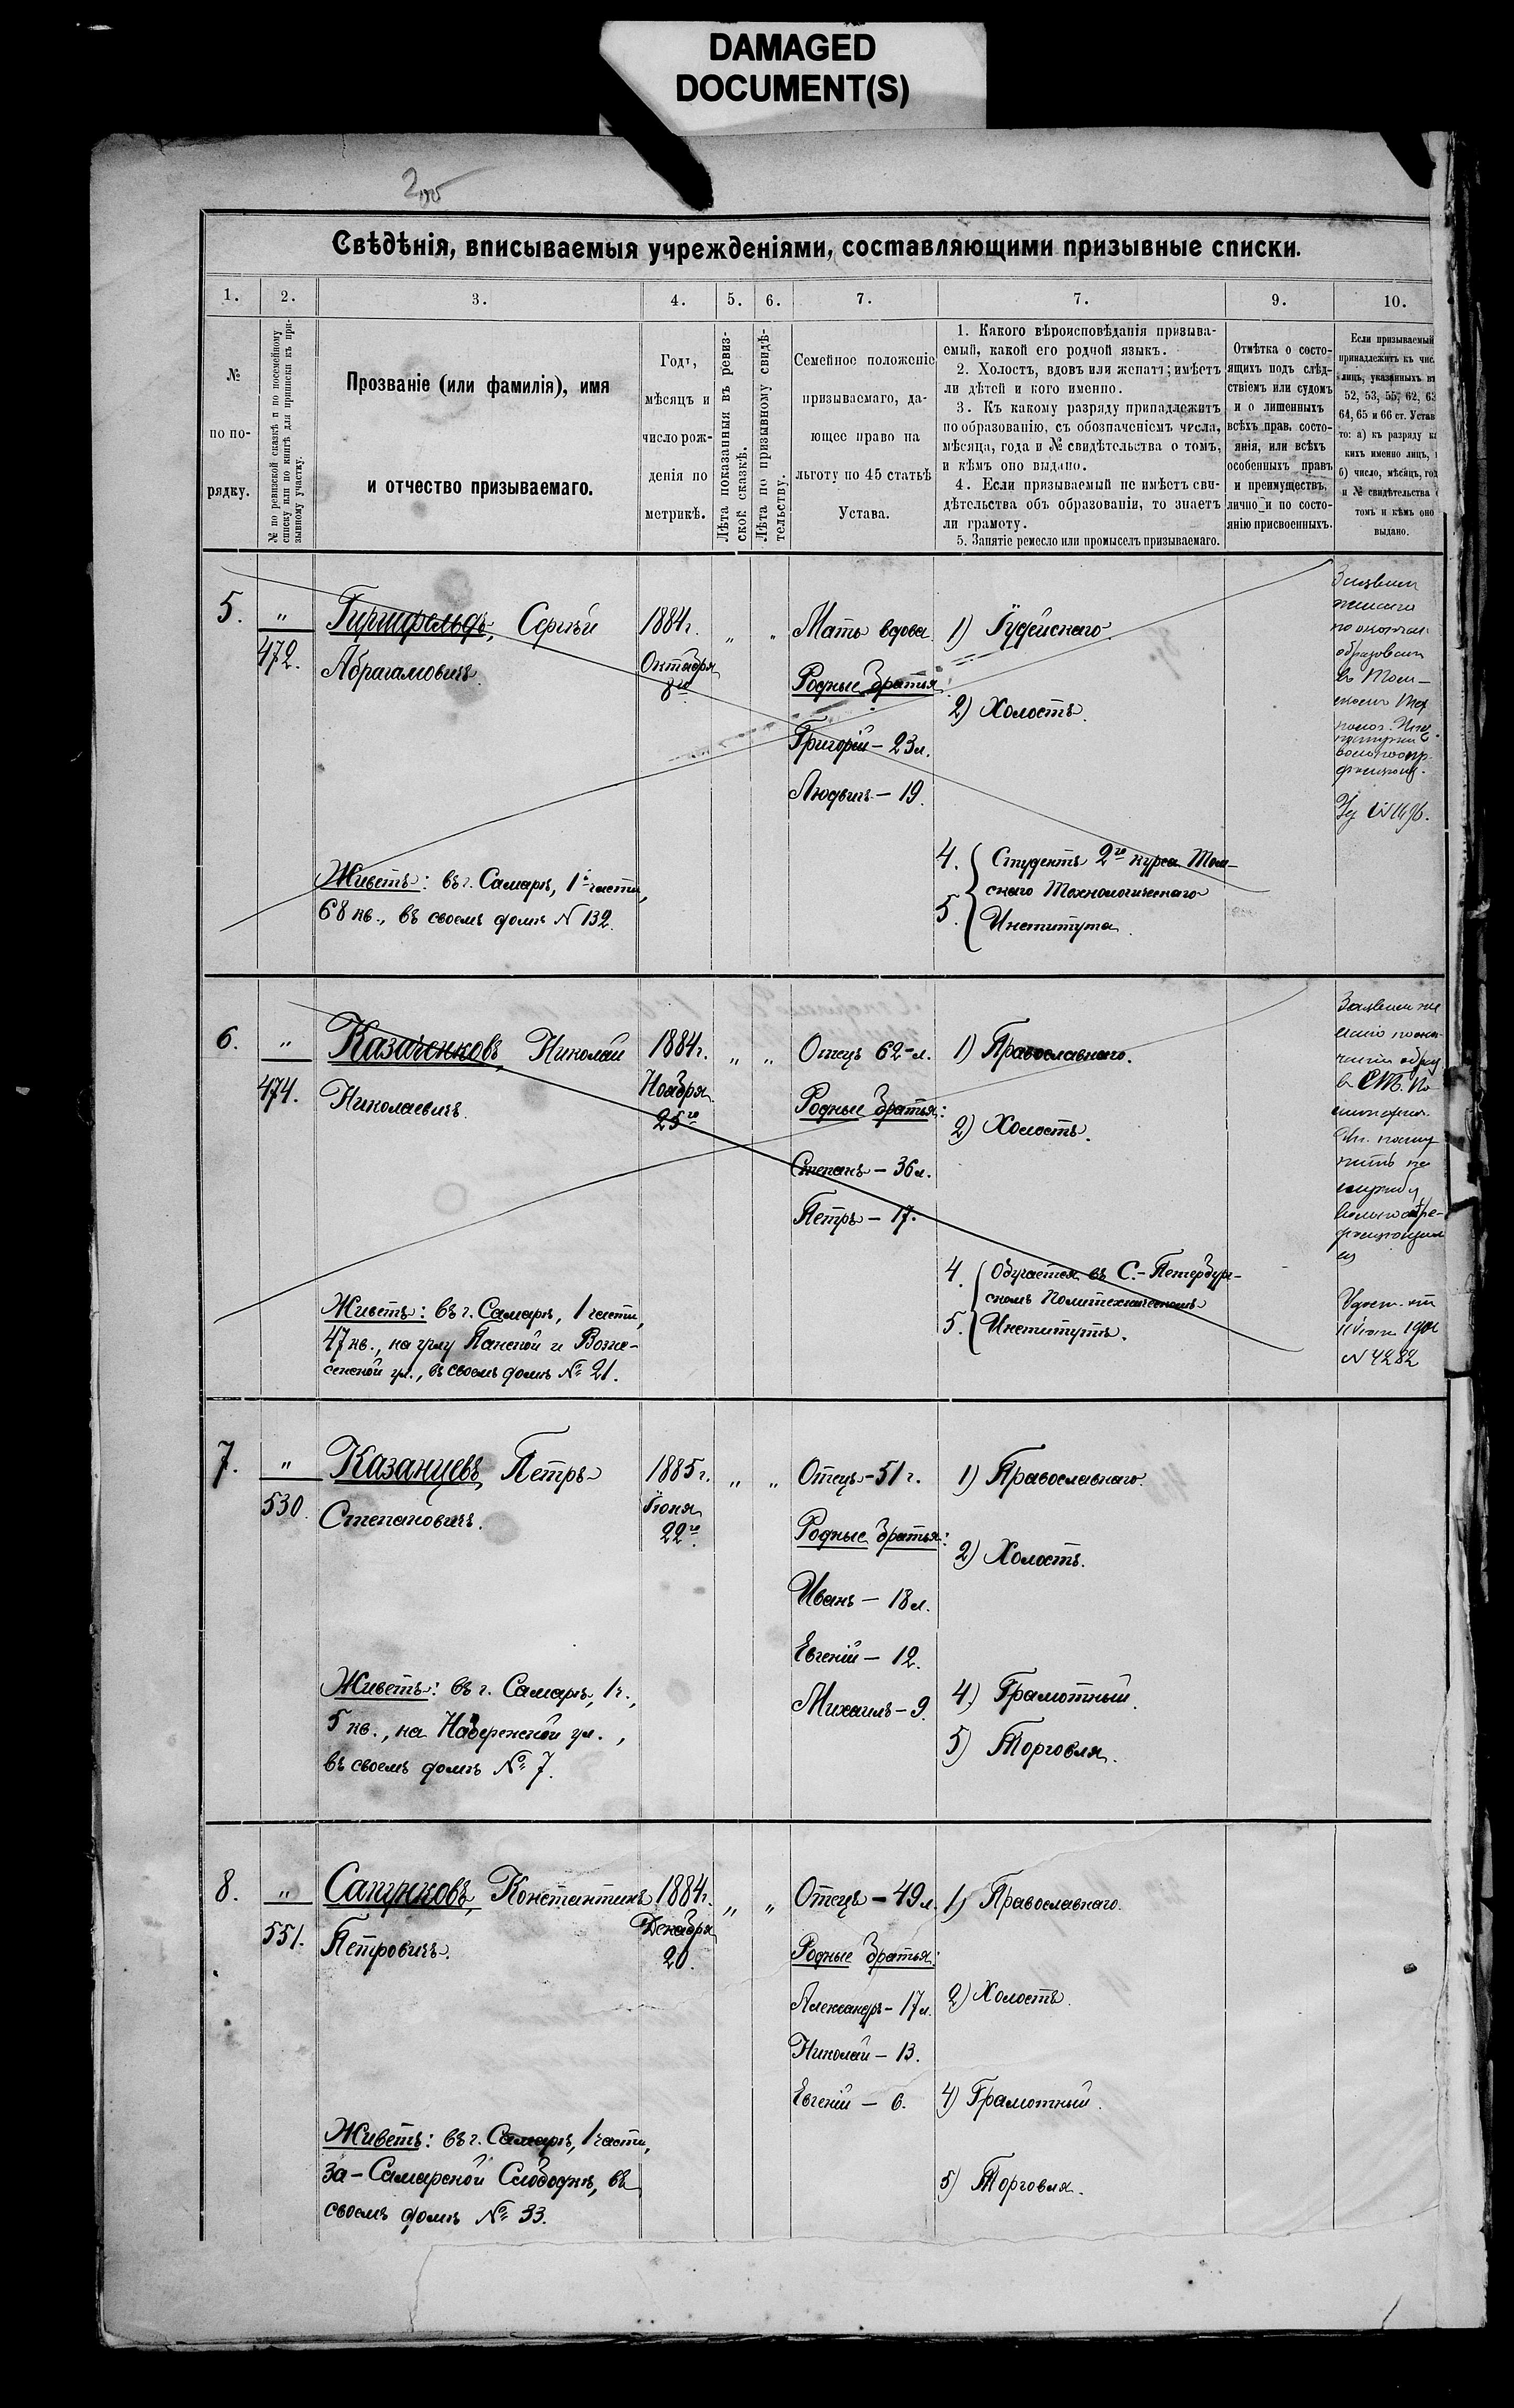 DAMAGED
DOCUMENT(S)
Свѣдѣнія, вписываемыя учрежденіями, составляющими призывные списки.
1. 2. 3. 4. 5. 6. 7. 7. 9. 10.
№
по по-
рядку.
№ по ревизской сказкѣ и по посемейному
списку или по книгѣ для приписки къ при-
зывному участку.
Прозваніе (или фамилія), имя
и отчество призываемаго.
Годъ,
мѣсяцъ и
число рож-
денія по
метрикѣ.
Лѣта показанныя въ ревиз-
ской сказкѣ.
Лѣта по призывному свидѣ-
тельству.
Семейное положеніе
призываемаго, да-
ющее право на
льготу по 45 статьѣ
Устава.
1. Какого вѣроисповѣданія призыва-
емый, какой его родной языкъ.
2. Холостъ, вдовъ или женатъ; имѣетъ
ли дѣтей и кого именно.
3. Къ какому разряду принадлежитъ
по образованію, съ обозначеніемъ числа,
мѣсяца, года и № свидѣтельства о томъ,
и кѣмъ оно выдано.
4. Если призываемый не имѣетъ сви-
дѣтельства объ образованіи, то знаетъ
ли грамоту.
5. Занятіе ремесло или промыселъ призываемаго.
Отмѣтка о состо-
ящихъ подъ слѣд-
ствіемъ или судомъ
и о лишенныхъ
всѣхъ прав. состо-
янія, или всѣхъ
особенныхъ правъ
и преимуществъ,
лично и по состо-
янію присвоенныхъ.
Если призываемый
принадлежитъ къ чис
лицъ, указанныхъ въ
52, 53, 55, 62, 63
64, 65 и 66 ст. Устав
то: а) къ разряду ка
кихъ именно лицъ,
б) число, мѣсяцъ, год
и № свидѣтельства о
томъ и кѣмъ оно
выдано.
5.
"
472.
Гиршфельдъ, Сергѣй
Абрагамовичъ.
Живетъ: въ г. Самарѣ, 1й части,
68 кв., въ своемъ домѣ № 132.
1884 г.
Октября
8го
" "
Мать вдова.
Родные братья
Григорій – 23 л.
Людвигъ – 19.
1) Іудейскаго.
2) Холостъ.
4. Студентъ 2го курса Том-
скаго Технологическаго
5. Института.
въ Том-
6.
"
474.
Казаченковъ, Николай
Николаевичъ.
Живетъ: въ г. Самарѣ, 1 части,
47 кв., на углу Панской и Возне-
сенской ул., въ своемъ домѣ № 21.
1884 г.
Ноября
25го
" "
Отецъ 62 л.
Родные братья:
Степанъ – 36 л.
Петръ – 17.
1) Православнаго.
2) Холостъ.
4. Обучается въ С.-Петербург-
скомъ Политехническомъ
5. Институтѣ.
службу
№ 4282
7.
"
530.
Казанцевъ, Петръ
Степановичъ.
Живетъ: въ г. Самарѣ, 1 ч.,
5 кв., на Набережной ул.,
въ своемъ домѣ № 7.
1885 г.
Іюня
22го.
" "
Отецъ – 51 г.
Родные братья:
Иванъ – 18 л.
Евгеній – 12.
Михаилъ – 9.
1) Православнаго.
2) Холостъ.
4) Грамотный.
5) Торговля.
8.
"
551.
Сапунковъ, Константинъ
Петровичъ.
Живетъ: въ г. Самарѣ, 1 части,
За-Самарской Слободкѣ, въ
своемъ домѣ № 33.
1884 г.
Декабря
20.
" "
Отецъ – 49 л.
Родные братья:
Александръ – 17 л.
Николай – 13.
Евгеній – 6.
1) Православнаго.
2) Холостъ.
4) Грамотный.
5) Торговля.